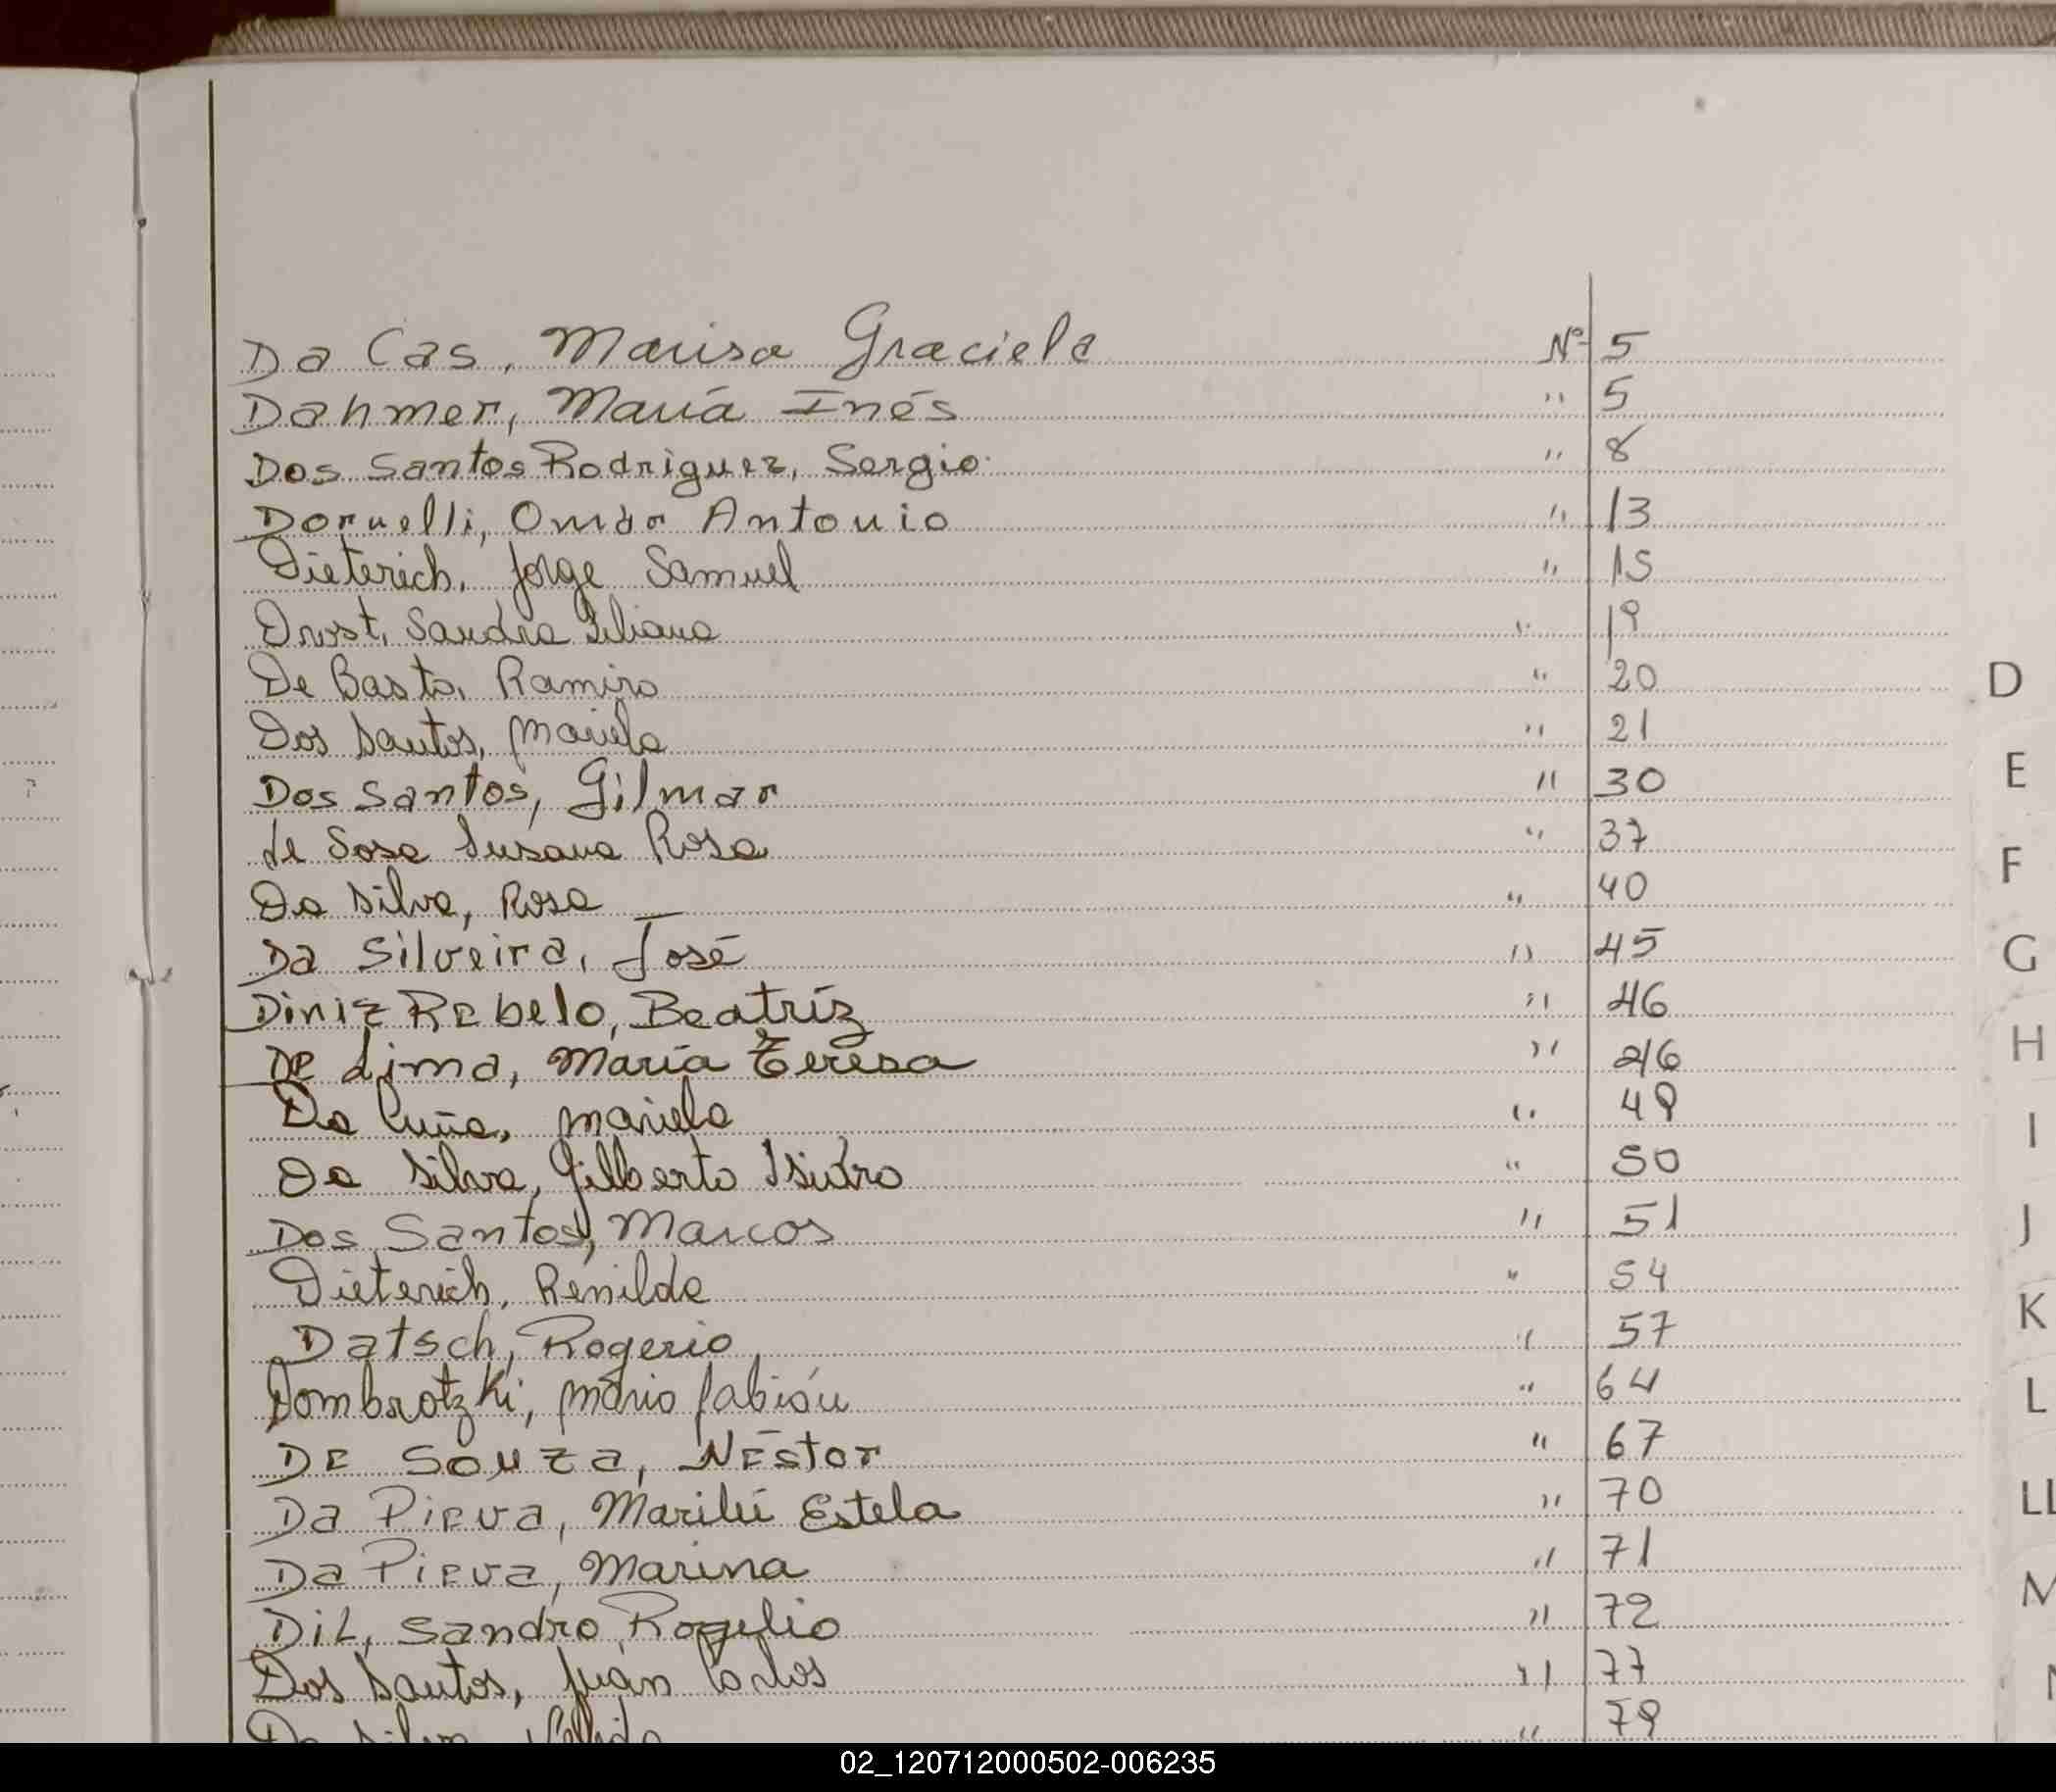 Da Cas, Marisa Graciela Nº 5
Dahmer, María Inés " 5
Dos Santos Rodriguez, Sergio " 8
Doruelli, Omar Antonio " 13
Dieterich, Jorge Samuel " 15
Drost, Sandra Liliana " 19
De Basto, Ramiro " 20
Dos Santos, Mariela " 21
D
Dos Santos, Gilmar " 30
E
de Sosa Susana Rosa " 37
F
Da Silva, Rosa " 40
Da Silveira, José " 45
G
Diniz Rebelo, Beatríz " 46
De Lima, María Teresa " 46
H
Da Mariela " 49
I
Da Silva, Gilberto Isidro " 50
Dos Santos, Marcos " 51
J
Dieterich, Renilda " 54
K
Datsch, Rogerio " 57
Dombrotzki, Mario Fabián " 64
L
De Souza, Néstor " 67
Da Pieva, Marilú Estela " 70
LL
Da Pieva, Marina " 71
M
Dil, Sandro Rogelio " 72
Dos Santos, Juan Carlos " 77
Da Silva, " 79
02_120712000502-006235